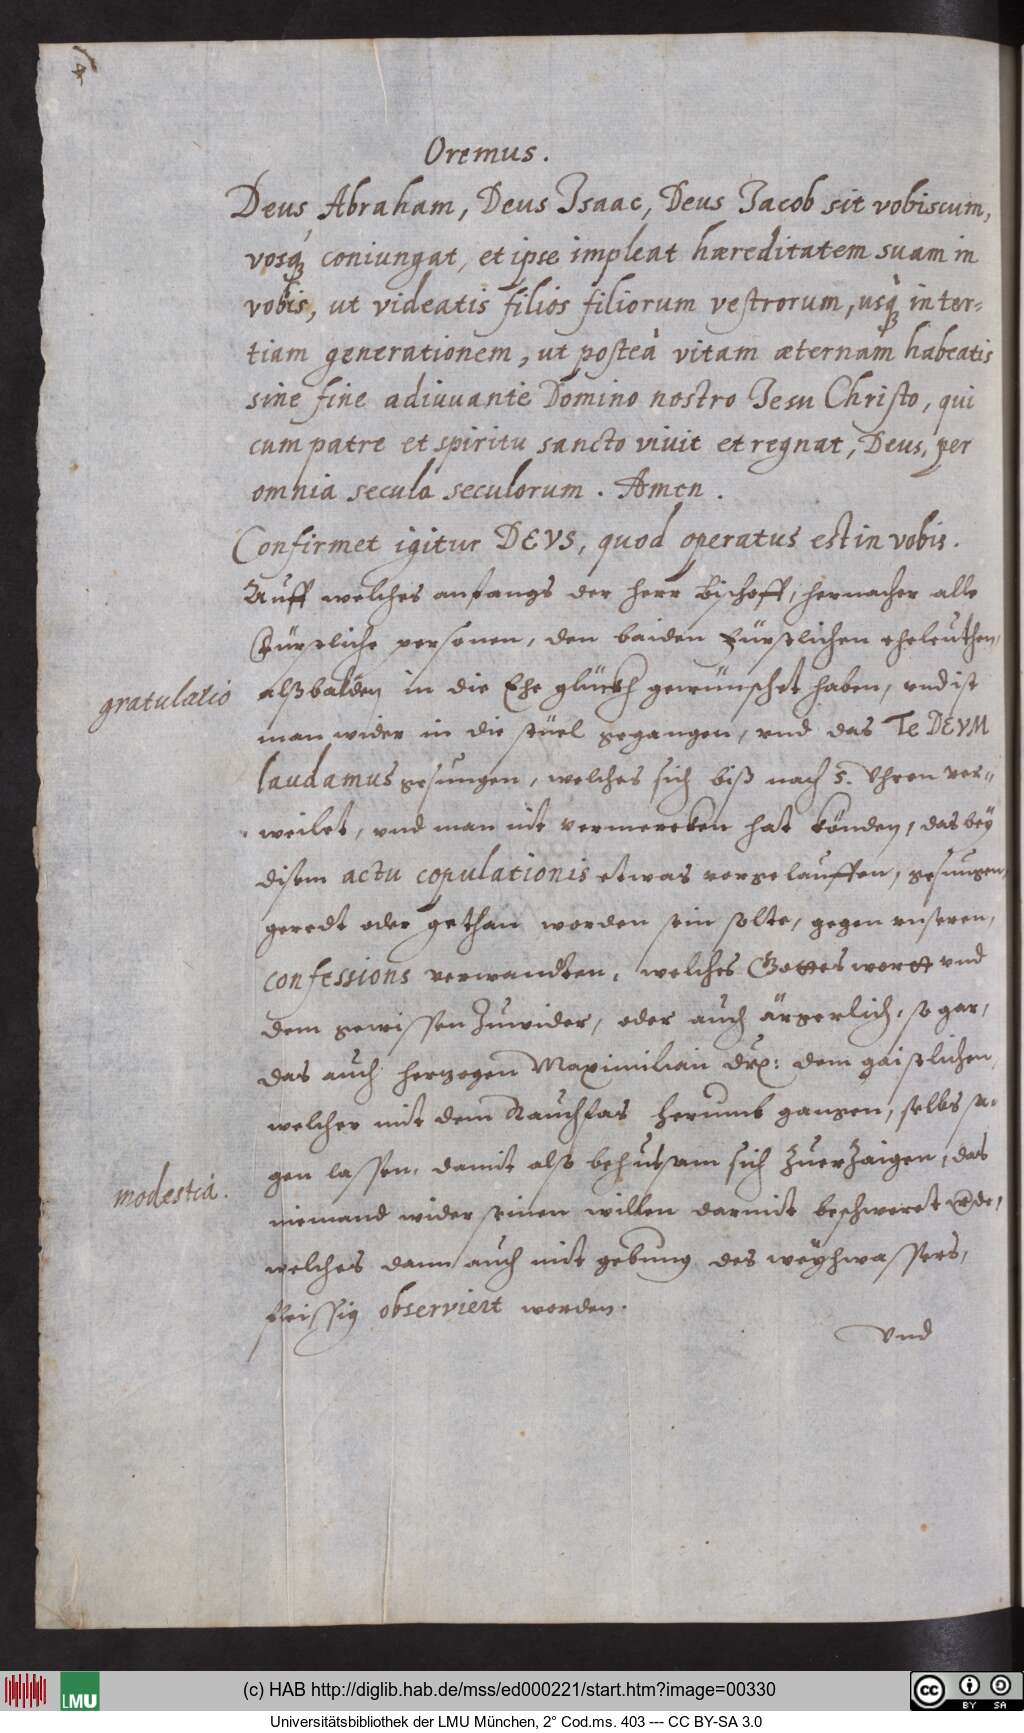 Oremus.
Deus Abraham, Deus Isaac, Deus Jacob sit vobiscum,
vosq́ꝫ coniungat, et ipse impleat hæreditatem suam in
vobis, ut videatis filios filiorum vestrorum, usq́ꝫ in ter=
tiam generationem, ut posteà vitam æternam habeatis
sine fine adiuuante Domino nostro Jesu Christo, qui
cum patre et spiritu sancto viuit et regnat, Deus, per
omnia secula seculorum. Amen.
Confirmet igitur DEVS, quod operatus est in vobis.
Auff welches anfangs der herr Bischoff, hernacher alle
Fürstliche personen, den baiden Fürstlichen eheleuthen,
gratulatio
alßbalden in die Ehe glückh gewünschet haben, vnd ist
man wider in die stüel gegangen, vnd das Te DEVM
laudamus gesungen, welches sich biß nach 5. Vhren ver=
weilet, vnd man nit vermercken hat könden, das bey
disem actu copulationis etwas vorgelauffen, gesungen,
geredt oder gethan worden sein solte, gegen unseren,
confessions verwandten, welches Gottes wortt vnd
dem gewissen zuwider, oder auch ärgerlich, so gar,
das auch herzogen Maximilian dem gaistlichen,
welcher mit dem Rauchfas herumb gangen, selbs sa=
gen lassen, damit also behutsam sich zuerzaigen, das
modestia.
niemand wider seinen willen darmit beschweret
welches dann auch mit gebung des weyhwassers,
fleissig observiert worden.
Vnd
(c) HAB http://diglib.hab.de/mss/ed000221/start.htm?image=00330
LMU
Universitätsbibliothek der LMU München, 2° Cod.ms. 403 --- CC BY-SA 3.0
cc BY SA